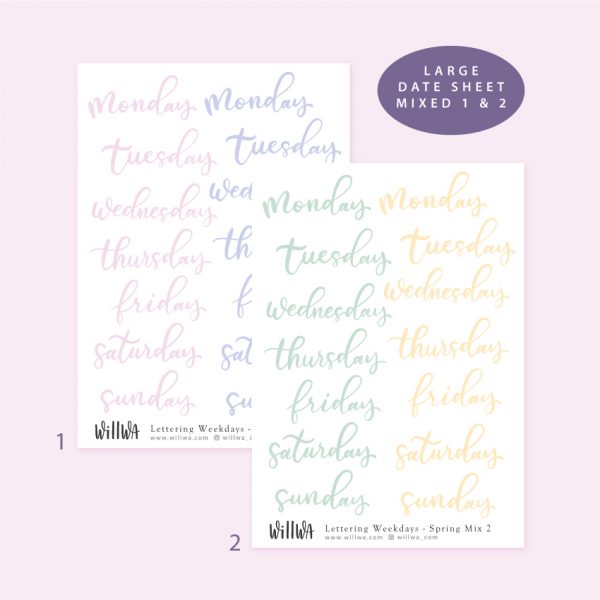 LARGE
DATE SHEET
MIXED 1 & 2
monday monday
tuesday tuesday
wednesday wed
thursday thu
friday f
saturday sat
sunday su
WillWa Lettering Weekdays -
www.willwa.com willwa_com
1
monday monday
tuesday tuesday
wednesday wednesday
thursday thursday
friday friday
saturday saturday
sunday sunday
WillWa Lettering Weekdays - Spring Mix 2
www.willwa.com willwa_com
2